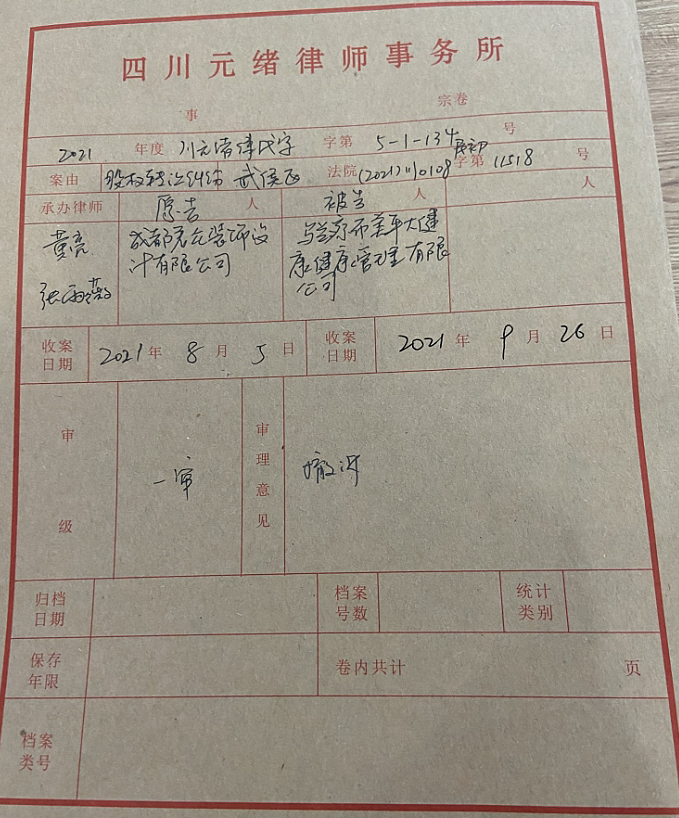 四川元绪律师事务所
事 宗卷
2021 年度 川元绪律民字 字第 5-1-134 号
案由 股权转让纠纷 武侯区 法院 (2021)川0108 民初 字第 11518 号
承办律师 原告 人 被告 人 人
黄亮
张雨薇
成都 装饰设
计有限公司
大健
康健康管理有限
公司
收案日期 2021 年 8 月 5 日 收案日期 2021 年 9 月 26 日
审级 一审 审理意见 撤诉
归档日期 档案号数 统计类别
保存年限 卷内共计 页
档案类号